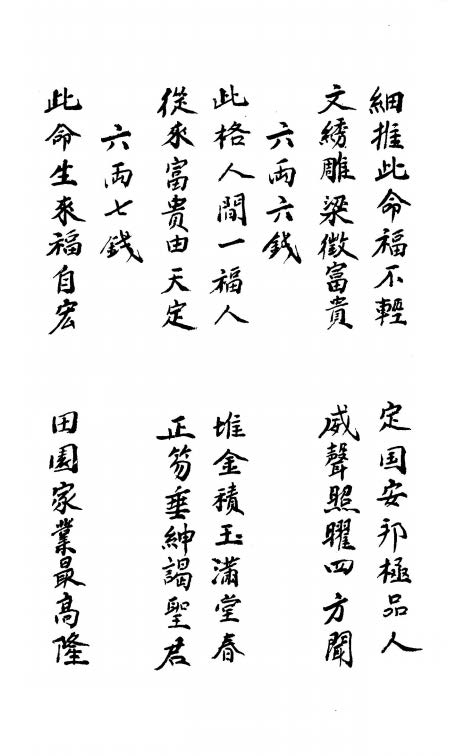 細推此命福不輕　定国安邦極品人
文綉雕梁徵富貴　威聲照曜四方聞
六両六錢
此格人間一福人　堆金積玉滿堂春
從來富貴由天定　正笏垂紳謁聖君
六両七錢
此命生來福自宏　田園家業最高隆